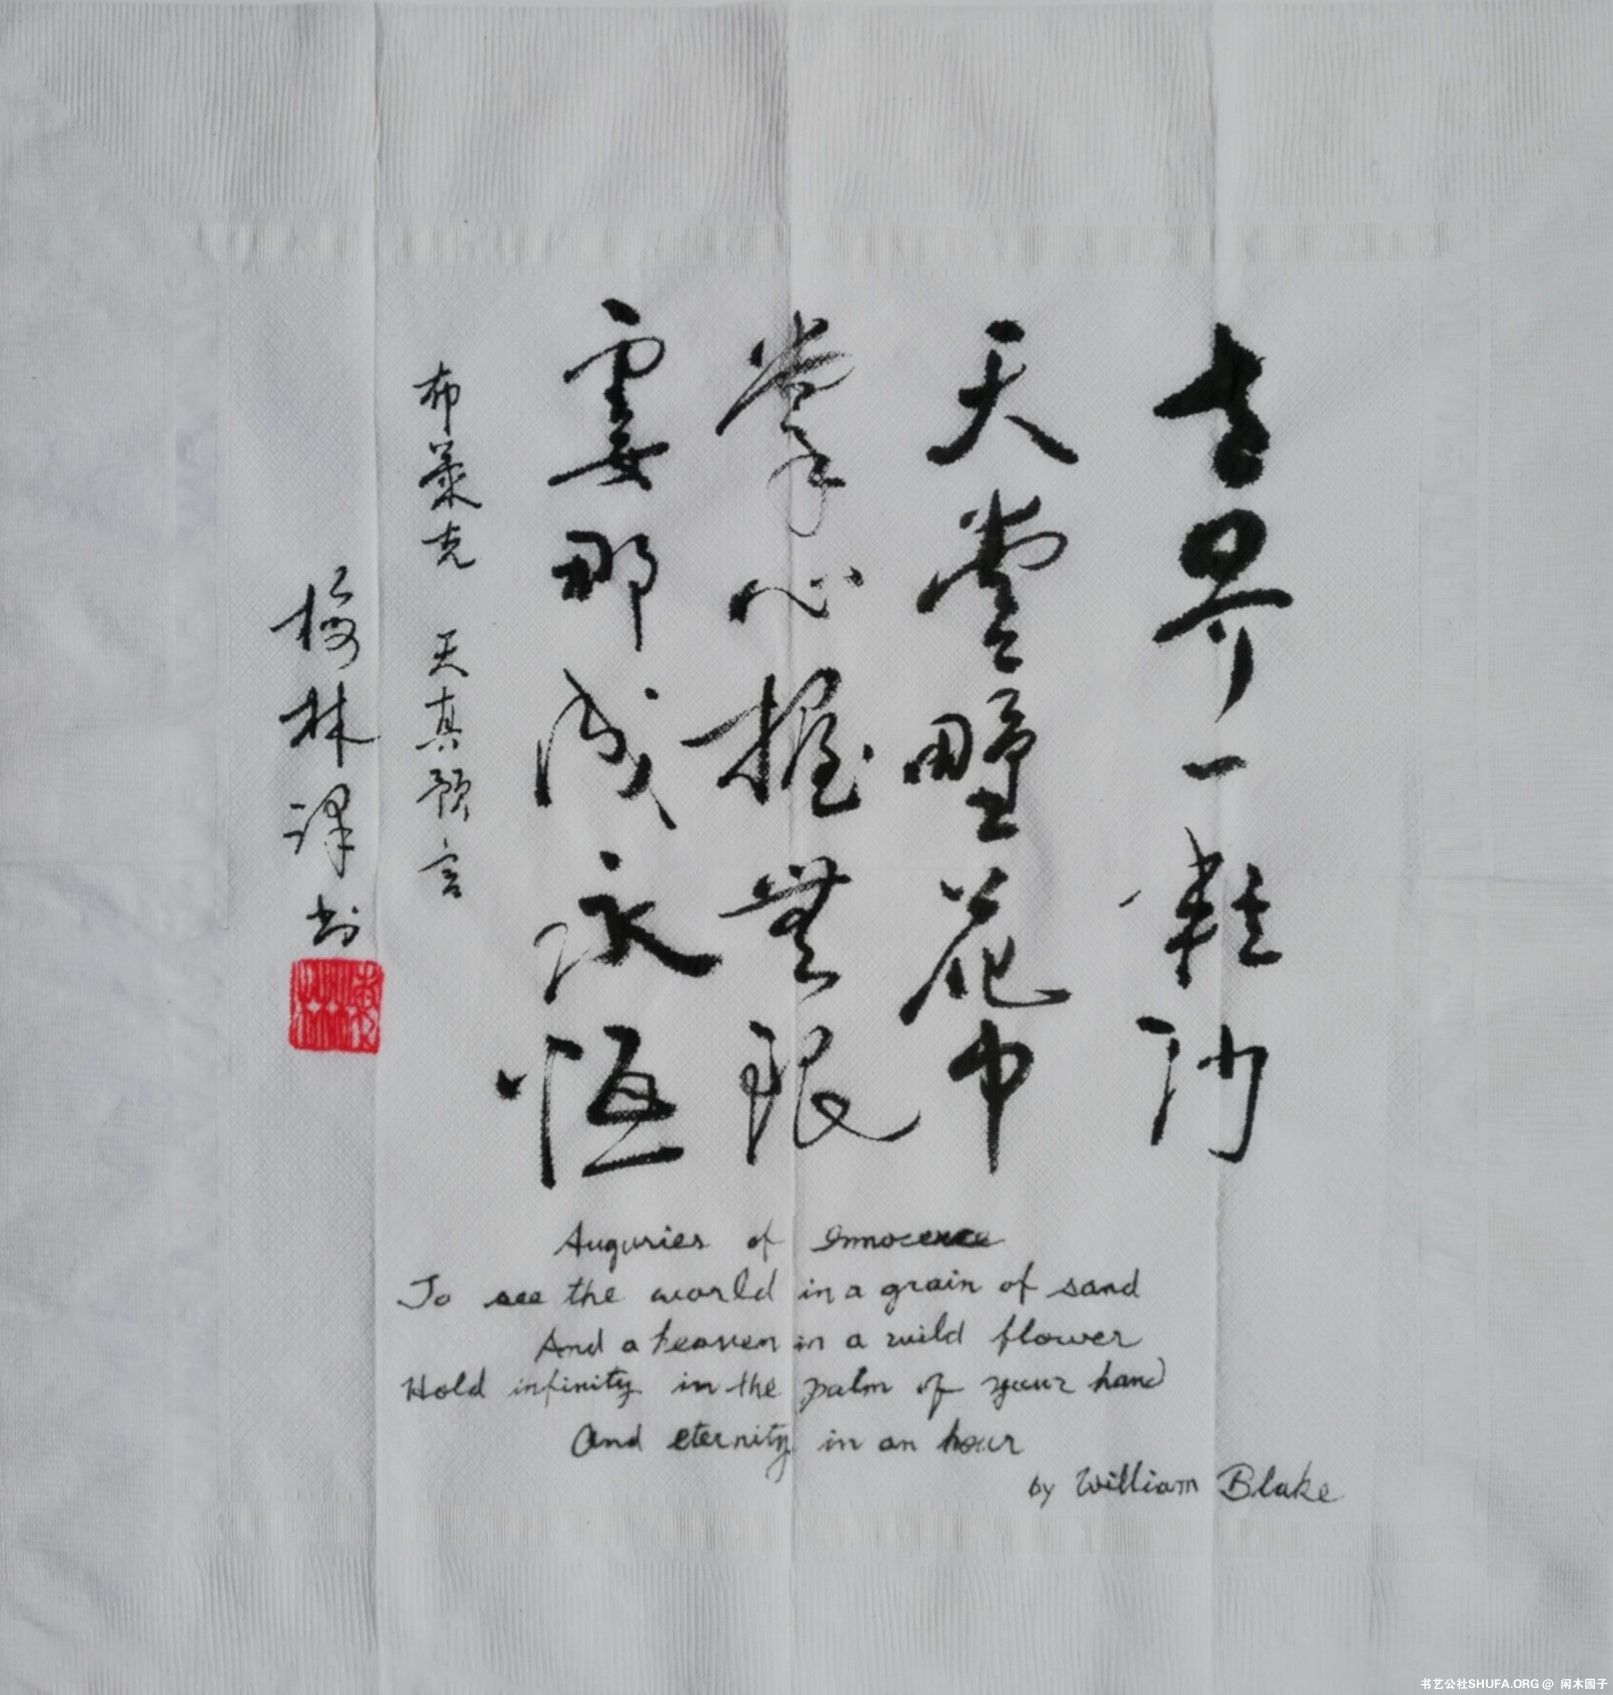 世界一粒沙
天堂野花中
掌心握無限
霎那成永恒
布萊克 天真预言
梅林译书
Auguries of Innocence
To see the world in a grain of sand
And a heaven in a wild flower
Hold infinity in the palm of your hand
And eternity in an hour
by William Blake
书艺公社SHUFA.ORG @ 闲木园子